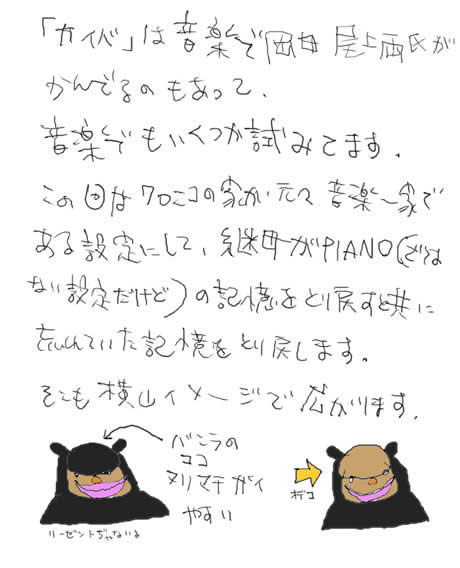 「カイバ」は音楽で岡田 尾上両氏が
かんでるのもあって、
音楽でもいくつか試みてます。
この回はクロニコの家が元々音楽一家で
ある設定にして、継母がPIANO(ざでは
ない設定だけど)の記憶をとり戻すと共に
忘れていた記憶をとり戻します。
そこも横山イメージで広がります。
バニラの
ココ
ヌリマチガイ
やすい
リーゼントぢゃないよ
オデコ